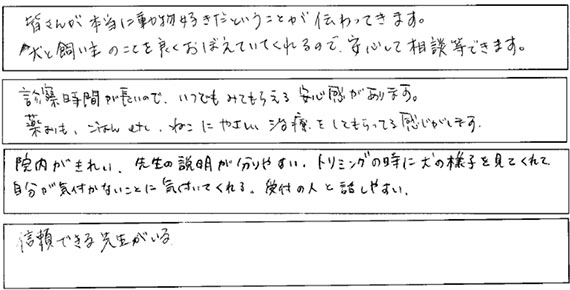 皆さんが本当に動物好きだということが伝わってきます。
犬と飼い主のことを良くおぼえていてくれるので、安心して相談等できます。
診察時間が長いので、いつでもみてもらえる安心感があります。
薬も、ごはん、ねこにやさしい治療をしてもらってる感じがします。
院内がきれい、先生の説明が分りやすい、トリミングの時に犬の様子を見てくれて
自分が気付かないことに気付いてくれる。受付の人と話しやすい、
信頼できる先生がいる